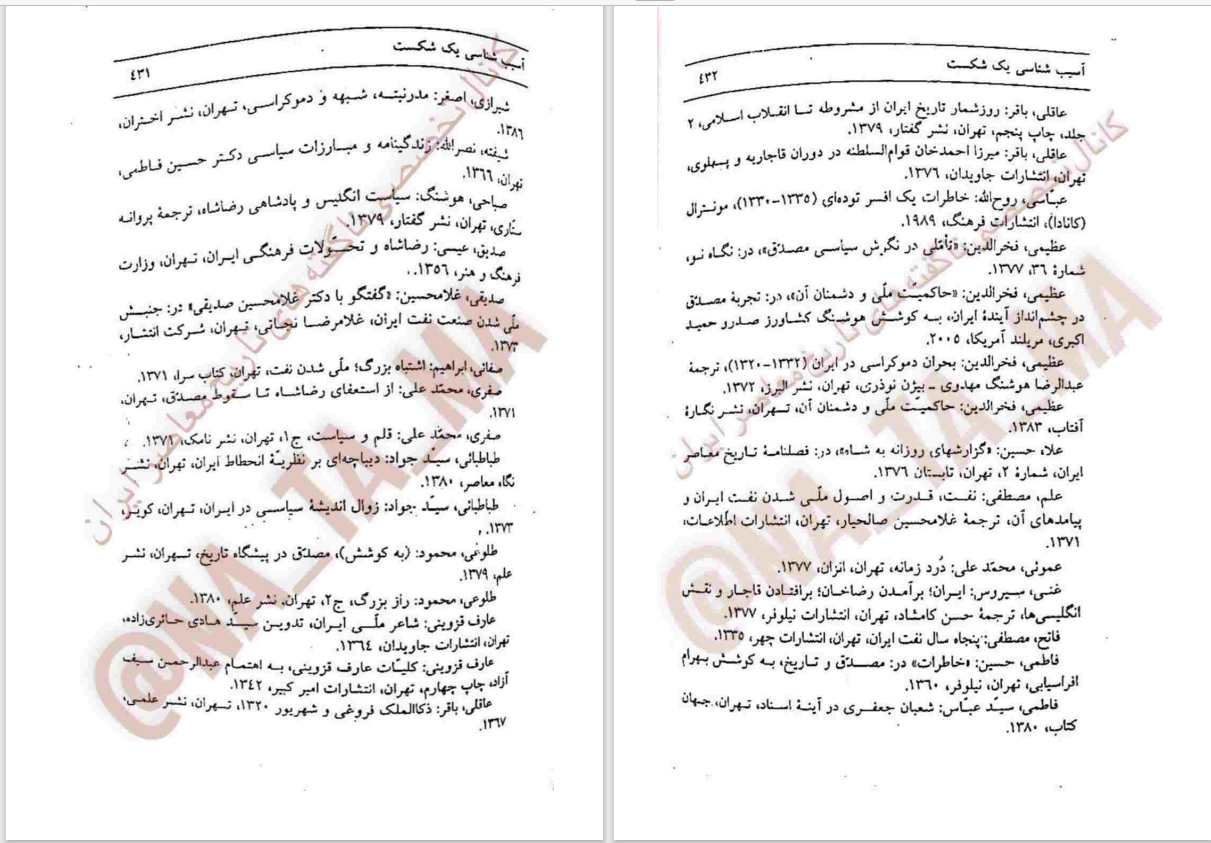 آسیب شناسی یک شکست
٤٣١
شیرازی، اصغر: مدرنیتـه، شـبهه و دموکراسـی، تـهران، نشـر اخـتران،
١٣٨٦.
شیفته، نصرالله: زندگینامه و مبـارزات سیاسـی دکـتر حسـین فـاطمی،
تهران، ١٣٦٦.
صباحی، هوشنگ: سیاست انگلیس و پادشاهی رضاشاه، ترجمهٔ پروانـه
ستاری، تهران، نشر گفتار، ١٣٧٩.
صدیق، عیسی: رضاشاه و تحـوّلات فرهنگـی ایـران، تـهران، وزارت
فرهنگ و هنر، ١٣٥٦.
صدیقی، غلامحسین: «گفتگو با دکتر غلامحسین صدیقی» در: جنبـش
ملّی شدن صنعت نفت ایران، غلامرضـا نجـاتی، تـهران، شـرکت انتشـار،
١٣٧٣.
صفائی، ابراهیم: اشتباه بزرگ؛ ملّی شدن نفت، تهران، کتاب سرا، ١٣٧١.
صفری، محمّد علی: از استعفای رضاشـاه تـا سـقوط مصـدّق، تـهران،
١٣٧١.
صفری، محمّد علی: قلم و سیاست، ج١، تهران، نشر نامک، ١٣٧١.
طباطبائی، سیـّد جواد: دیباچه‌ای بر نظریـّهٔ انحطاط ایران، تهران، نشـر
نگاه معاصر، ١٣٨٠.
طباطبائی، سیـّد جواد: زوال اندیشهٔ سیاسـی در ایـران، تـهران، کویـر،
١٣٧٣.
طلوعی، محمود: (به کوشش)، مصدّق در پیشگاه تاریخ، تـهران، نشـر
علم، ١٣٧٩.
طلوعی، محمود: راز بزرگ، ج٢، تهران، نشر علم، ١٣٨٠.
عارف قزوینی: شاعر ملّـی ایـران، تدویـن سیـّد هـادی حـائری‌زاده،
تهران، انتشارات جاویدان، ١٣٦٤.
عارف قزوینی: کلیـّات عارف قزوینی، بـه اهتمـام عبدالرحمـن سـیف
آزاد، چاپ چهارم، تهران، انتشارات امیر کبیر، ١٣٤٢.
عاقلی، باقر: ذکاالملک فروغی و شهریور ١٣٢٠، تـهران، نشـر علمـی،
١٣٦٧.
کانال تخصصی ناگفته های تاریخ معاصر ایران
@NA_TA_MA
آسیب شناسی یک شکست
٤٣٢
عاقلی، باقر: روزشمار تاریخ ایران از مشروطه تـا انقـلاب اسـلامی، ٢
جلد، چاپ پنجم، تهران، نشر گفتار، ١٣٧٩.
عاقلی، باقر: میرزا احمدخان قوام‌السلطنه در دوران قاجاریه و پـهلوی،
تهران، انتشارات جاویدان، ١٣٧٦.
عبـّاسی، روح‌الله: خاطرات یک افسر توده‌ای (١٣٣٥-١٣٣٠)، مونـترال
(کانادا)، انتشارات فرهنگ، ١٩٨٩.
عظیمی، فخرالدین: «تأمّلی در نگرش سیاسـی مصـدّق»، در: نگـاه نـو،
شمارهٔ ٣٦، ١٣٧٧.
عظیمی، فخرالدین: «حاکمیـّت ملّی و دشمنان آن»، در: تجربهٔ مصـدّق
در چشم‌انداز آیندهٔ ایران، بـه کوشـش هوشـنگ کشـاورز صـدر و حمید
اکبری، مریلند آمریکا، ٢٠٠٥.
عظیمی، فخرالدین: بحران دموکراسی در ایران (١٣٣٢-١٣٢٠)، ترجمهٔ
عبدالرضا هوشنگ مهدوی ـ بیژن نوذری، تهران، نشر البرز، ١٣٧٢.
عظیمی، فخرالدین: حاکمیـّت ملّی و دشمنان آن، تـهران، نشـر نگـارهٔ
آفتاب، ١٣٨٣.
علاء حسین: «گزارشهای روزانه به شـاه»، در: فصلنامـهٔ تـاریخ معـاصر
ایران، شمارهٔ ٢، تهران، تابستان ١٣٧٦.
علم، مصطفی: نفـت، قـدرت و اصـول ملّـی شـدن نفـت ایـران و
پیامدهای آن، ترجمهٔ غلامحسین صالحیار، تهران، انتشارات اطّلاعـات،
١٣٧١.
عموئی، محمّد علی: دُرد زمانه، تهران، انزان، ١٣٧٧.
غنـی، سیـروس: ایـران؛ برآمـدن رضاخـان؛ برافتـادن قاجـار و نقـش
انگلیسی‌ها، ترجمهٔ حسن کامشاد، تهران، انتشارات نیلوفر، ١٣٧٧.
فاتح، مصطفی: پنجاه سال نفت ایران، تهران، انتشارات چهر، ١٣٣٥.
فاطمی، حسین: «خاطرات» در: مصـدّق و تـاریخ، بـه کوشـش بـهرام
افراسیابی، تهران، نیلوفر، ١٣٦٠.
فاطمی، سیـّد عبـّاس: شعبان جعفـری در آینـهٔ اسـناد، تـهران، جـهان
کتاب، ١٣٨٠.
کانال تخصصی ناگفته های تاریخ معاصر ایران
@NA_TA_MA